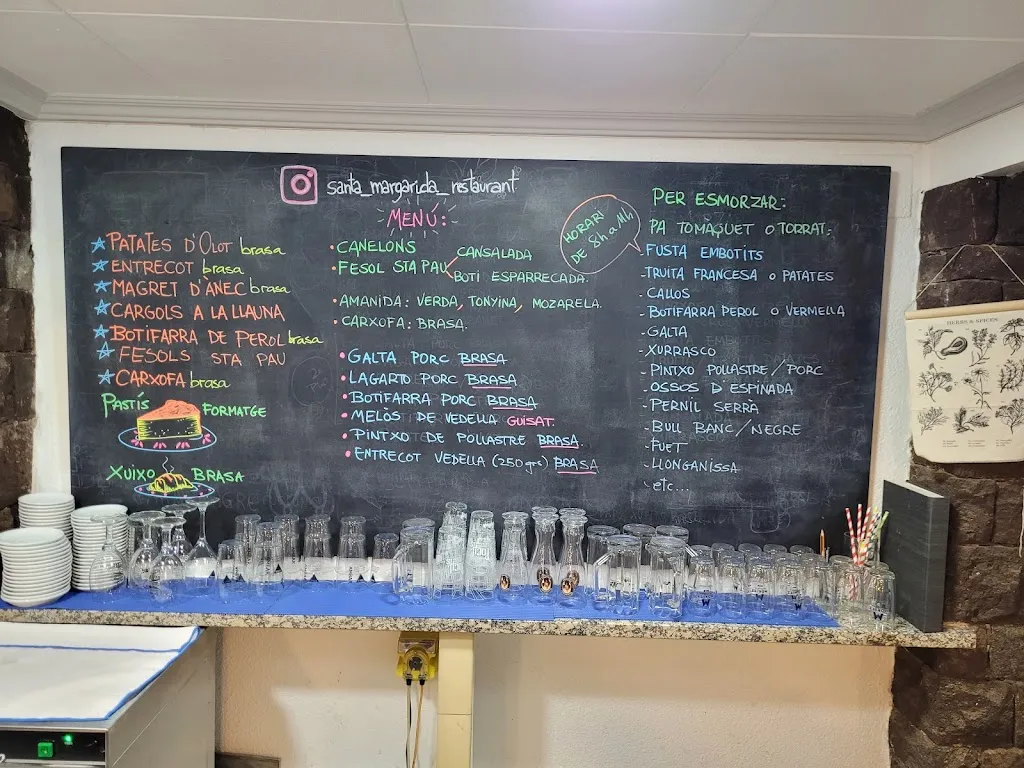 santa_margarida_restaurant
MENÚ:
PATATES D'OLOT brasa
ENTRECOT brasa
MAGRET D'ÀNEC brasa
CARGOLS A LA LLAUNA
BOTIFARRA DE PEROL brasa
FESOLS STA PAU
CARXOFA brasa
PASTÍS FORMATGE
XUIXO BRASA
· CANELONS
· FESOL STA PAU
CANSALADA
BOTI ESPARRECADA.
· AMANIDA: VERDA, TONYINA, MOZARELA.
· CARXOFA: BRASA.
• GALTA PORC BRASA
• LAGARTO PORC BRASA
• BOTIFARRA PORC BRASA
• MELÒS DE VEDELLA GUISAT.
• PINTXO DE POLLASTRE BRASA.
• ENTRECOT VEDELLA (250 grs) BRASA
HORARI
DE 8h a
PER ESMORZAR:
PA TOMAQUET O TORRAT:
- FUSTA EMBOTITS
- TRUITA FRANCESA O PATATES
- CALLOS
- BOTIFARRA PEROL O VERMELLA
- GALTA
- XURRASCO
- PINTXO POLLASTRE/PORC
- OSSOS D'ESPINADA
- PERNIL SERRÀ
- BULL BANC/NEGRE
- FUET
- LLONGANISSA
- etc...
HERBS & SPICES